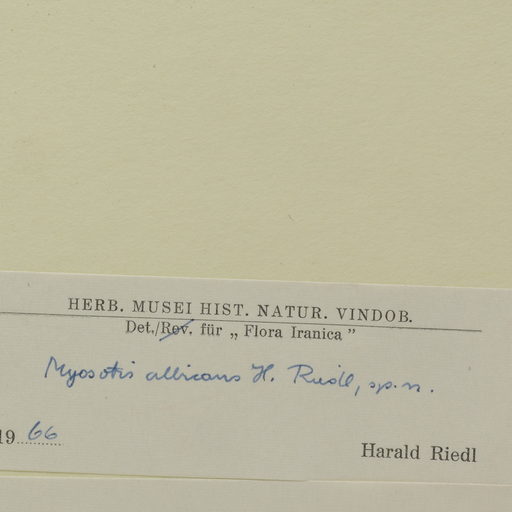 HERB. MUSEI HIST. NATUR. VINDOB.
Det./Rev. für „ Flora Iranica ”
Myosotis albicans H. Riedl, sp. n.
19 66
Harald Riedl